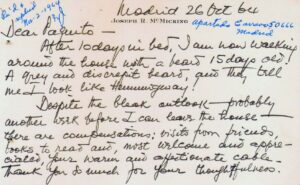 Madrid 26 Oct 64
JOSEPH R. McMICKING
Apartado Correos 50666
Madrid
Dear Paquito —
After 10 days in bed, I am now walking
around the house with a beard 15 days old.
A grey and discrepit beard, and they tell
me I look like Hemmingway!
Despite the bleak outlook — probably
another week before I can leave the house —
there are compensations; visits from friends,
books to read and, most welcome and appre-
ciated, your warm and affectionate cable.
Thank you so much for your thoughtfulness.